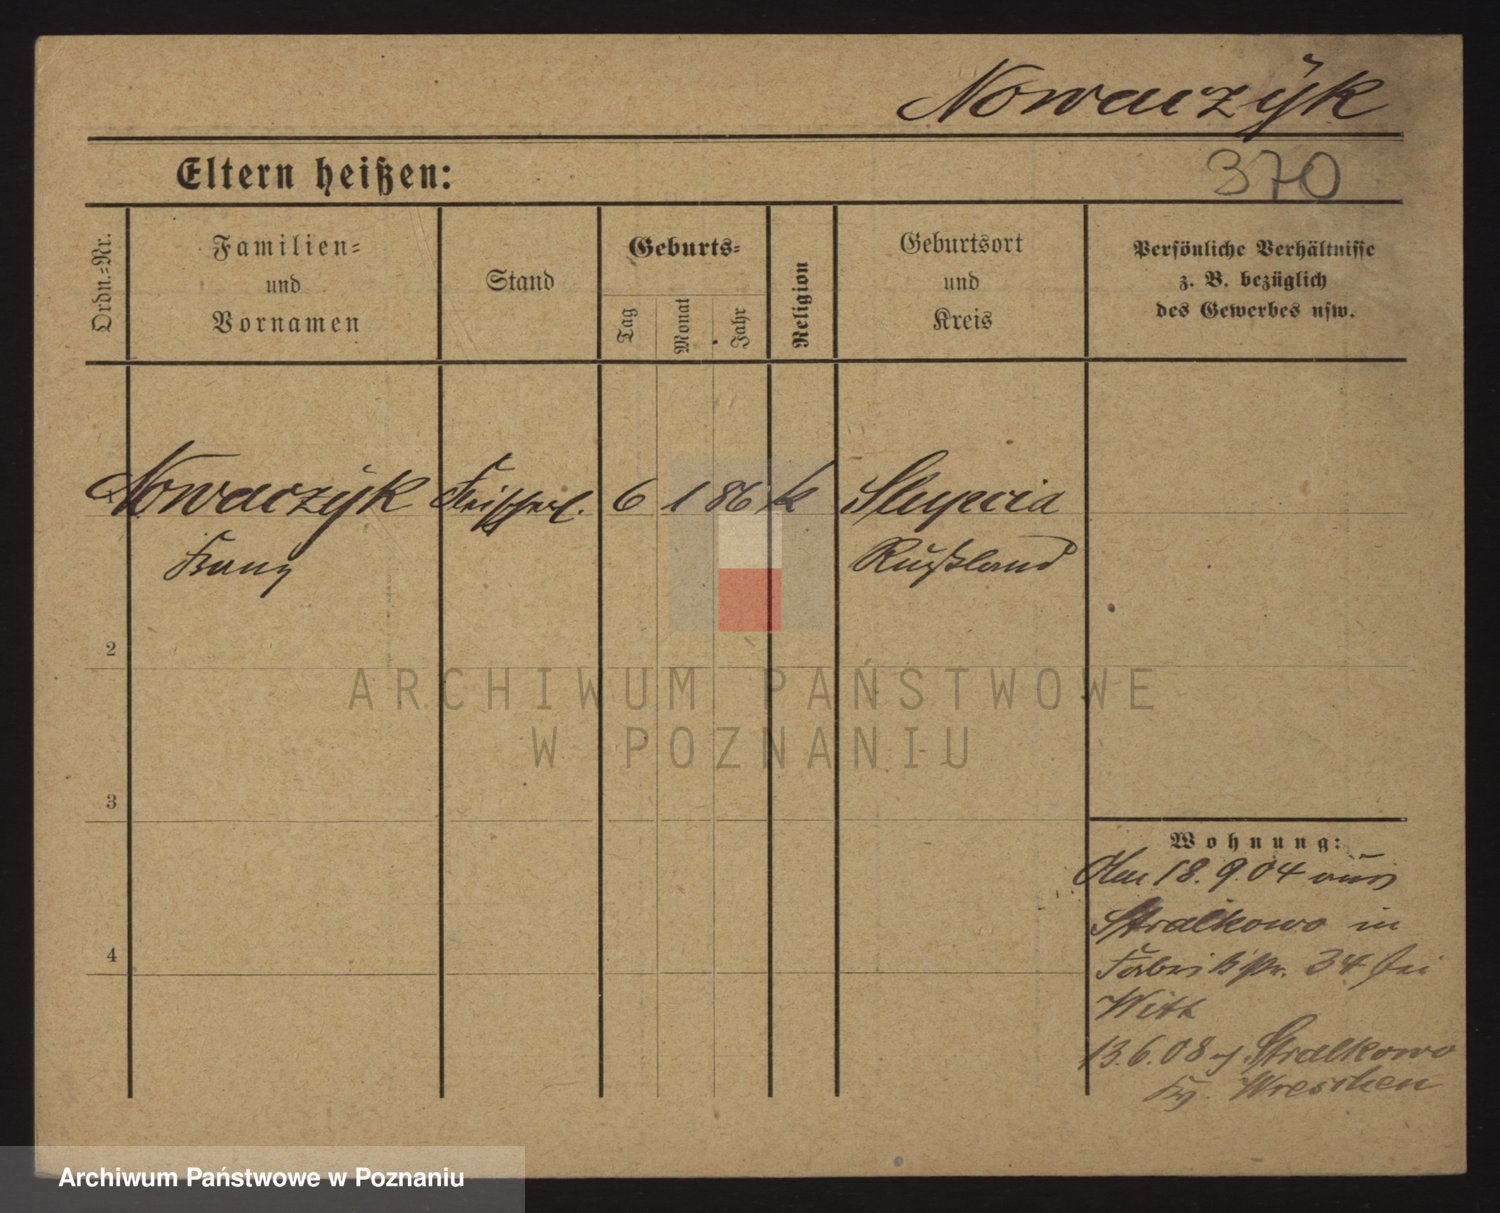 Nowaczÿk
Eltern heißen:
370
Ordn.=Nr.
Familien=
und
Vornamen
Stand
Geburts=
Tag
Monat
Jahr
Religion
Geburtsort
und
Kreis
Persönliche Verhältnisse
z. B. bezüglich
des Gewerbes usw.
Nowaczÿk Fleischerl. 6 1 86 k Slupecia
Franz Rußland
2
3
4
Wohnung:
Den 18.9.04 aus
Stralkowo in
Fabrikstr. 34 bei
Witt
13.6.08 n. Stralkowo
Kr. Wreschen
ARCHIWUM PAŃSTWOWE
W POZNANIU
Archiwum Państwowe w Poznaniu